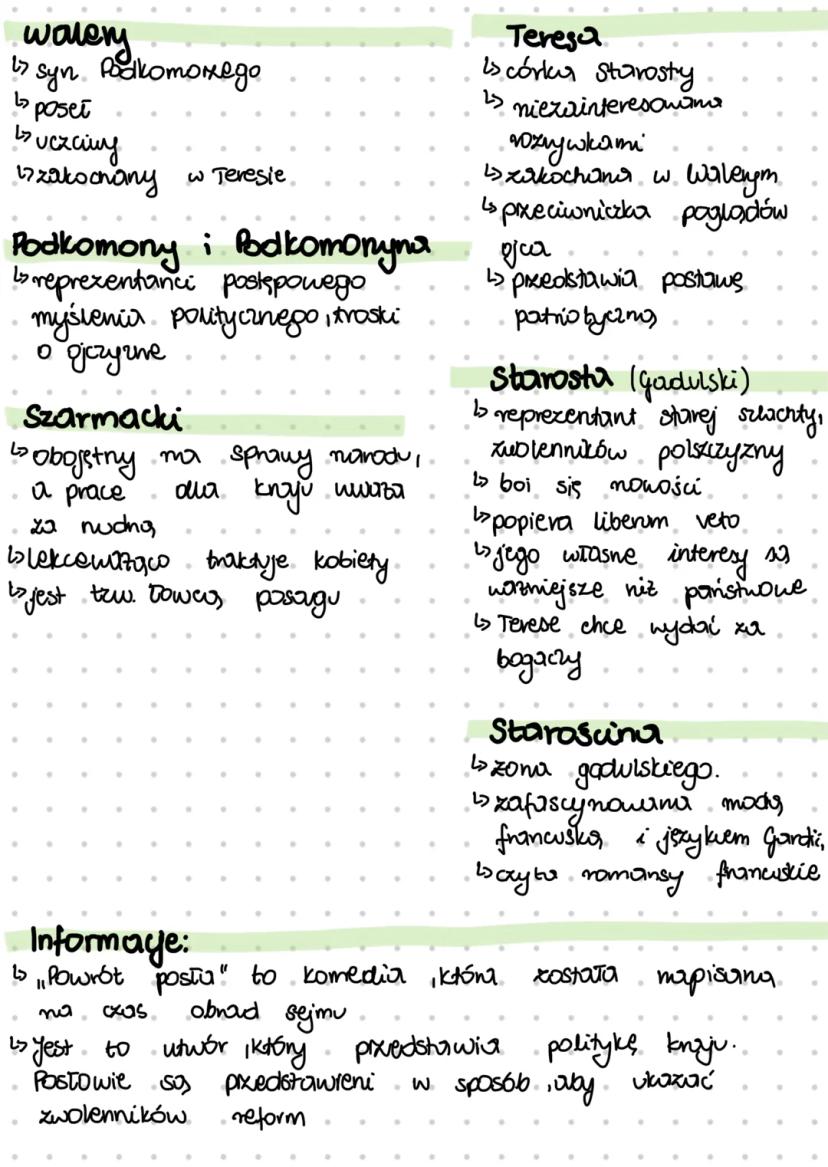 Walery
↳ syn Podkomorzego
↳ poseł
↳ uczciwy
↳ zakochany w Teresie.
Podkomorzy i Podkomorzyna
↳ reprezentanci postępowego
myślenia politycznego, troski
o ojczyznę
Szarmacki
↳ obojętny na sprawy narodu,
a prace dla kraju uważa
za nudną
↳ lekceważąco traktuje kobiety
↳ jest tzw. łowcą posagu
Teresa
↳ córka Starosty
↳ niezainteresowana
rozrywkami
↳ zakochana w Walerym
↳ przeciwniczka poglądów
ojca
↳ przedstawia postawę
patriotyczną
Starosta (Gadulski)
↳ reprezentant starej szlachty,
zwolenników polszczyzny
↳ boi się nowości
↳ popiera liberum veto
↳ jego własne interesy są
ważniejsze niż państwowe
↳ Terese chce wydać za
bogaczy
Starościna
↳ żona gadulskiego.
↳ zafascynowana modą
francuską i językiem
↳ czyta romansy francuskie
Informacje:
↳ „Powrót posła" to komedia, która została napisana
na czas obrad sejmu
↳ Jest to utwór, który przedstawia politykę kraju.
Posłowie są przedstawieni w sposób, aby ukazać
zwolenników reform